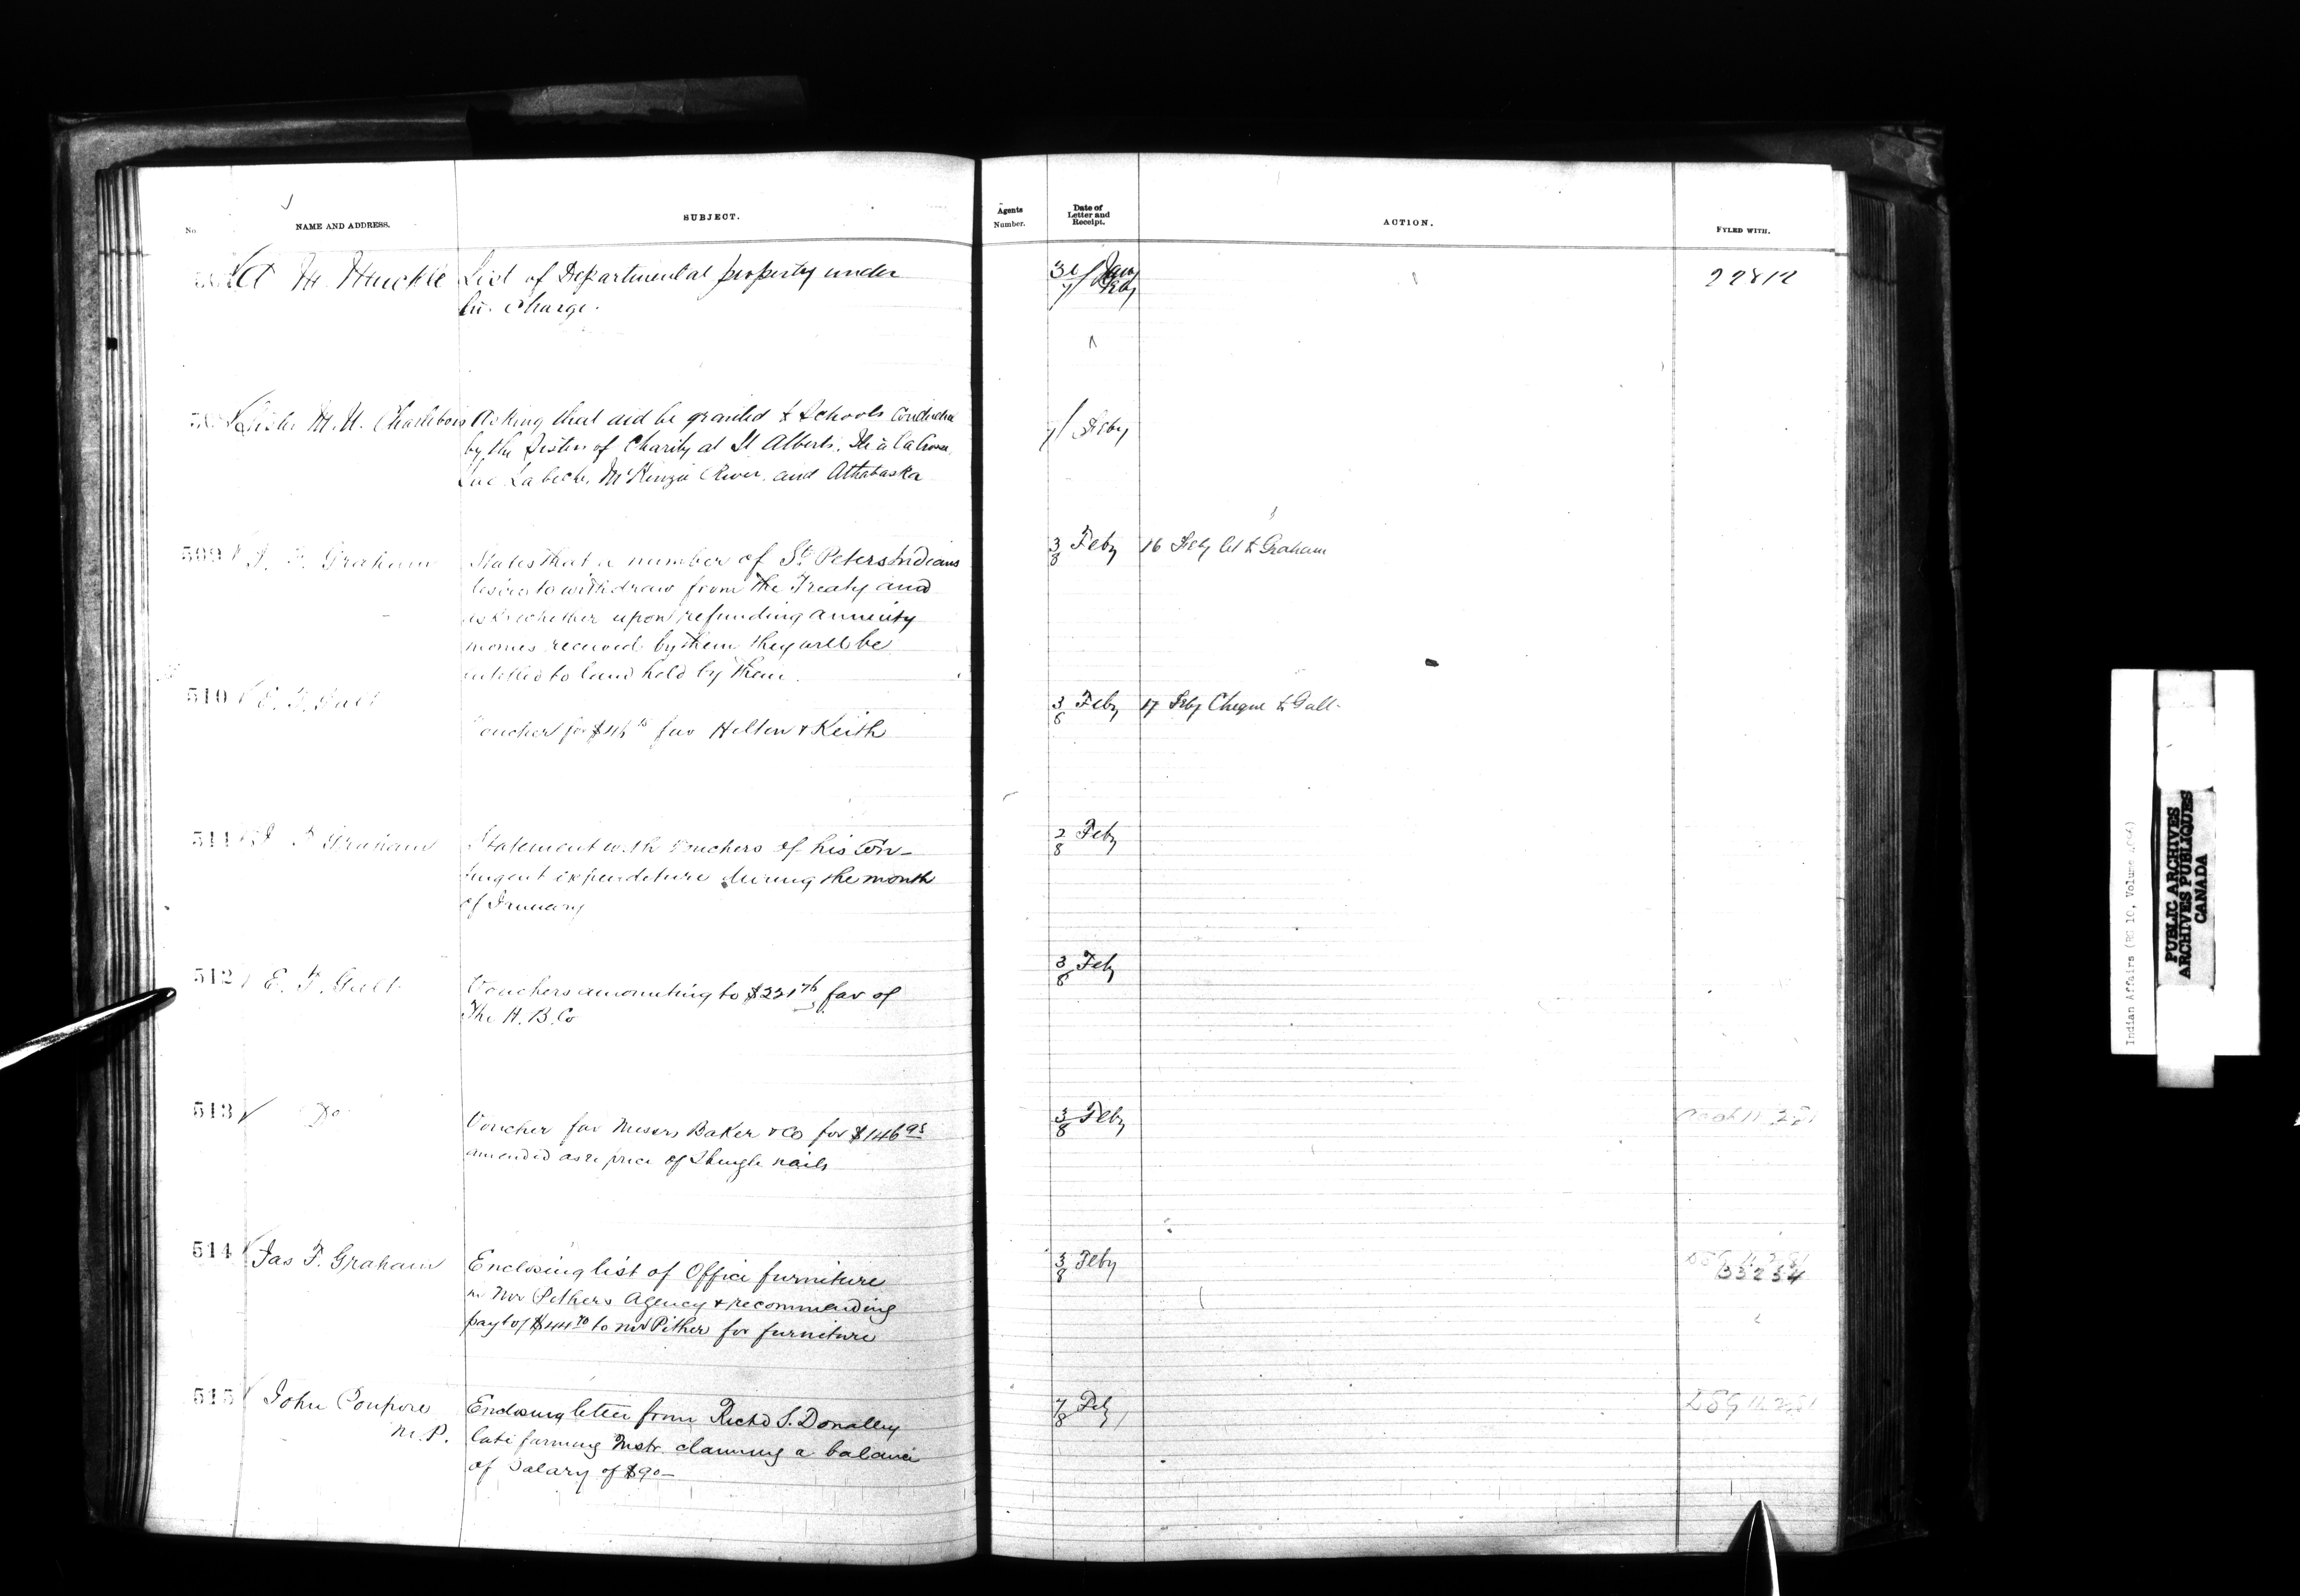 No
NAME AND ADDRESS.
SUBJECT.
Agents
Number.
Date of
Letter and
Receipt.
ACTION.
FYLED WITH.
List of Departmental property under
his Charge.
31/ Jany
7/ Feby
22812
Sister M. A. Charlebois
Asking that aid be granted to Schools Conducted
by the Sisters of Charity at St Alberts, Ile à la Crosse,
Lac La biche, McKenzie River, and Athabaska
7/ Feby
509
J. F. Graham
States that a number of St Peters Indians
desire to withdraw from the Treaty and
asks whether upon refunding annuity
monies received by them they will be
entitled to land held by them.
3/8 Feby
16 Feby let to Graham
510
E. T. Galt
Voucher for fav Hilton & Keith
3/8 Feby
17 Feby Cheque to Galt
511
J. F. Graham
Statement with Vouchers of his con-
tingent expenditure during the month
of January
2/8 Feby
512
E. T. Galt
Vouchers amounting to $231 76 fav of
The H. B. Co
3/8 Feby
513
Do
Voucher fav Messrs Baker & Co for $146 95
amended as re price of Shingle nails
3/8 Feby
514
Jas F. Graham
Enclosing list of Office furniture
in Mr Pithers Agency & recommending
payt of to Mr Pither for furniture
3/8 Feby
33234
515
John Poupore
M.P.
Enclosing letter from Richd S. Donalley
late farming Instr. claiming a balance
of Salary of $90—
7/8 Feby
Indian Affairs (RG 10, Volume
PUBLIC ARCHIVES
ARCHIVES PUBLIQUES
CANADA